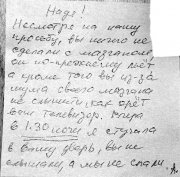 Надя!
Несмотря на нашу
просьбу, вы ничего не
сделали с маззаном,
он по-прежнему пьёт
а кроме того вы из-за
шума своего маззана
не слышите, как орёт
ваш телевизор. Вчера
в 1.30 ночи я стучала
в вашу дверь, вы не
слышали, а мы не спали.